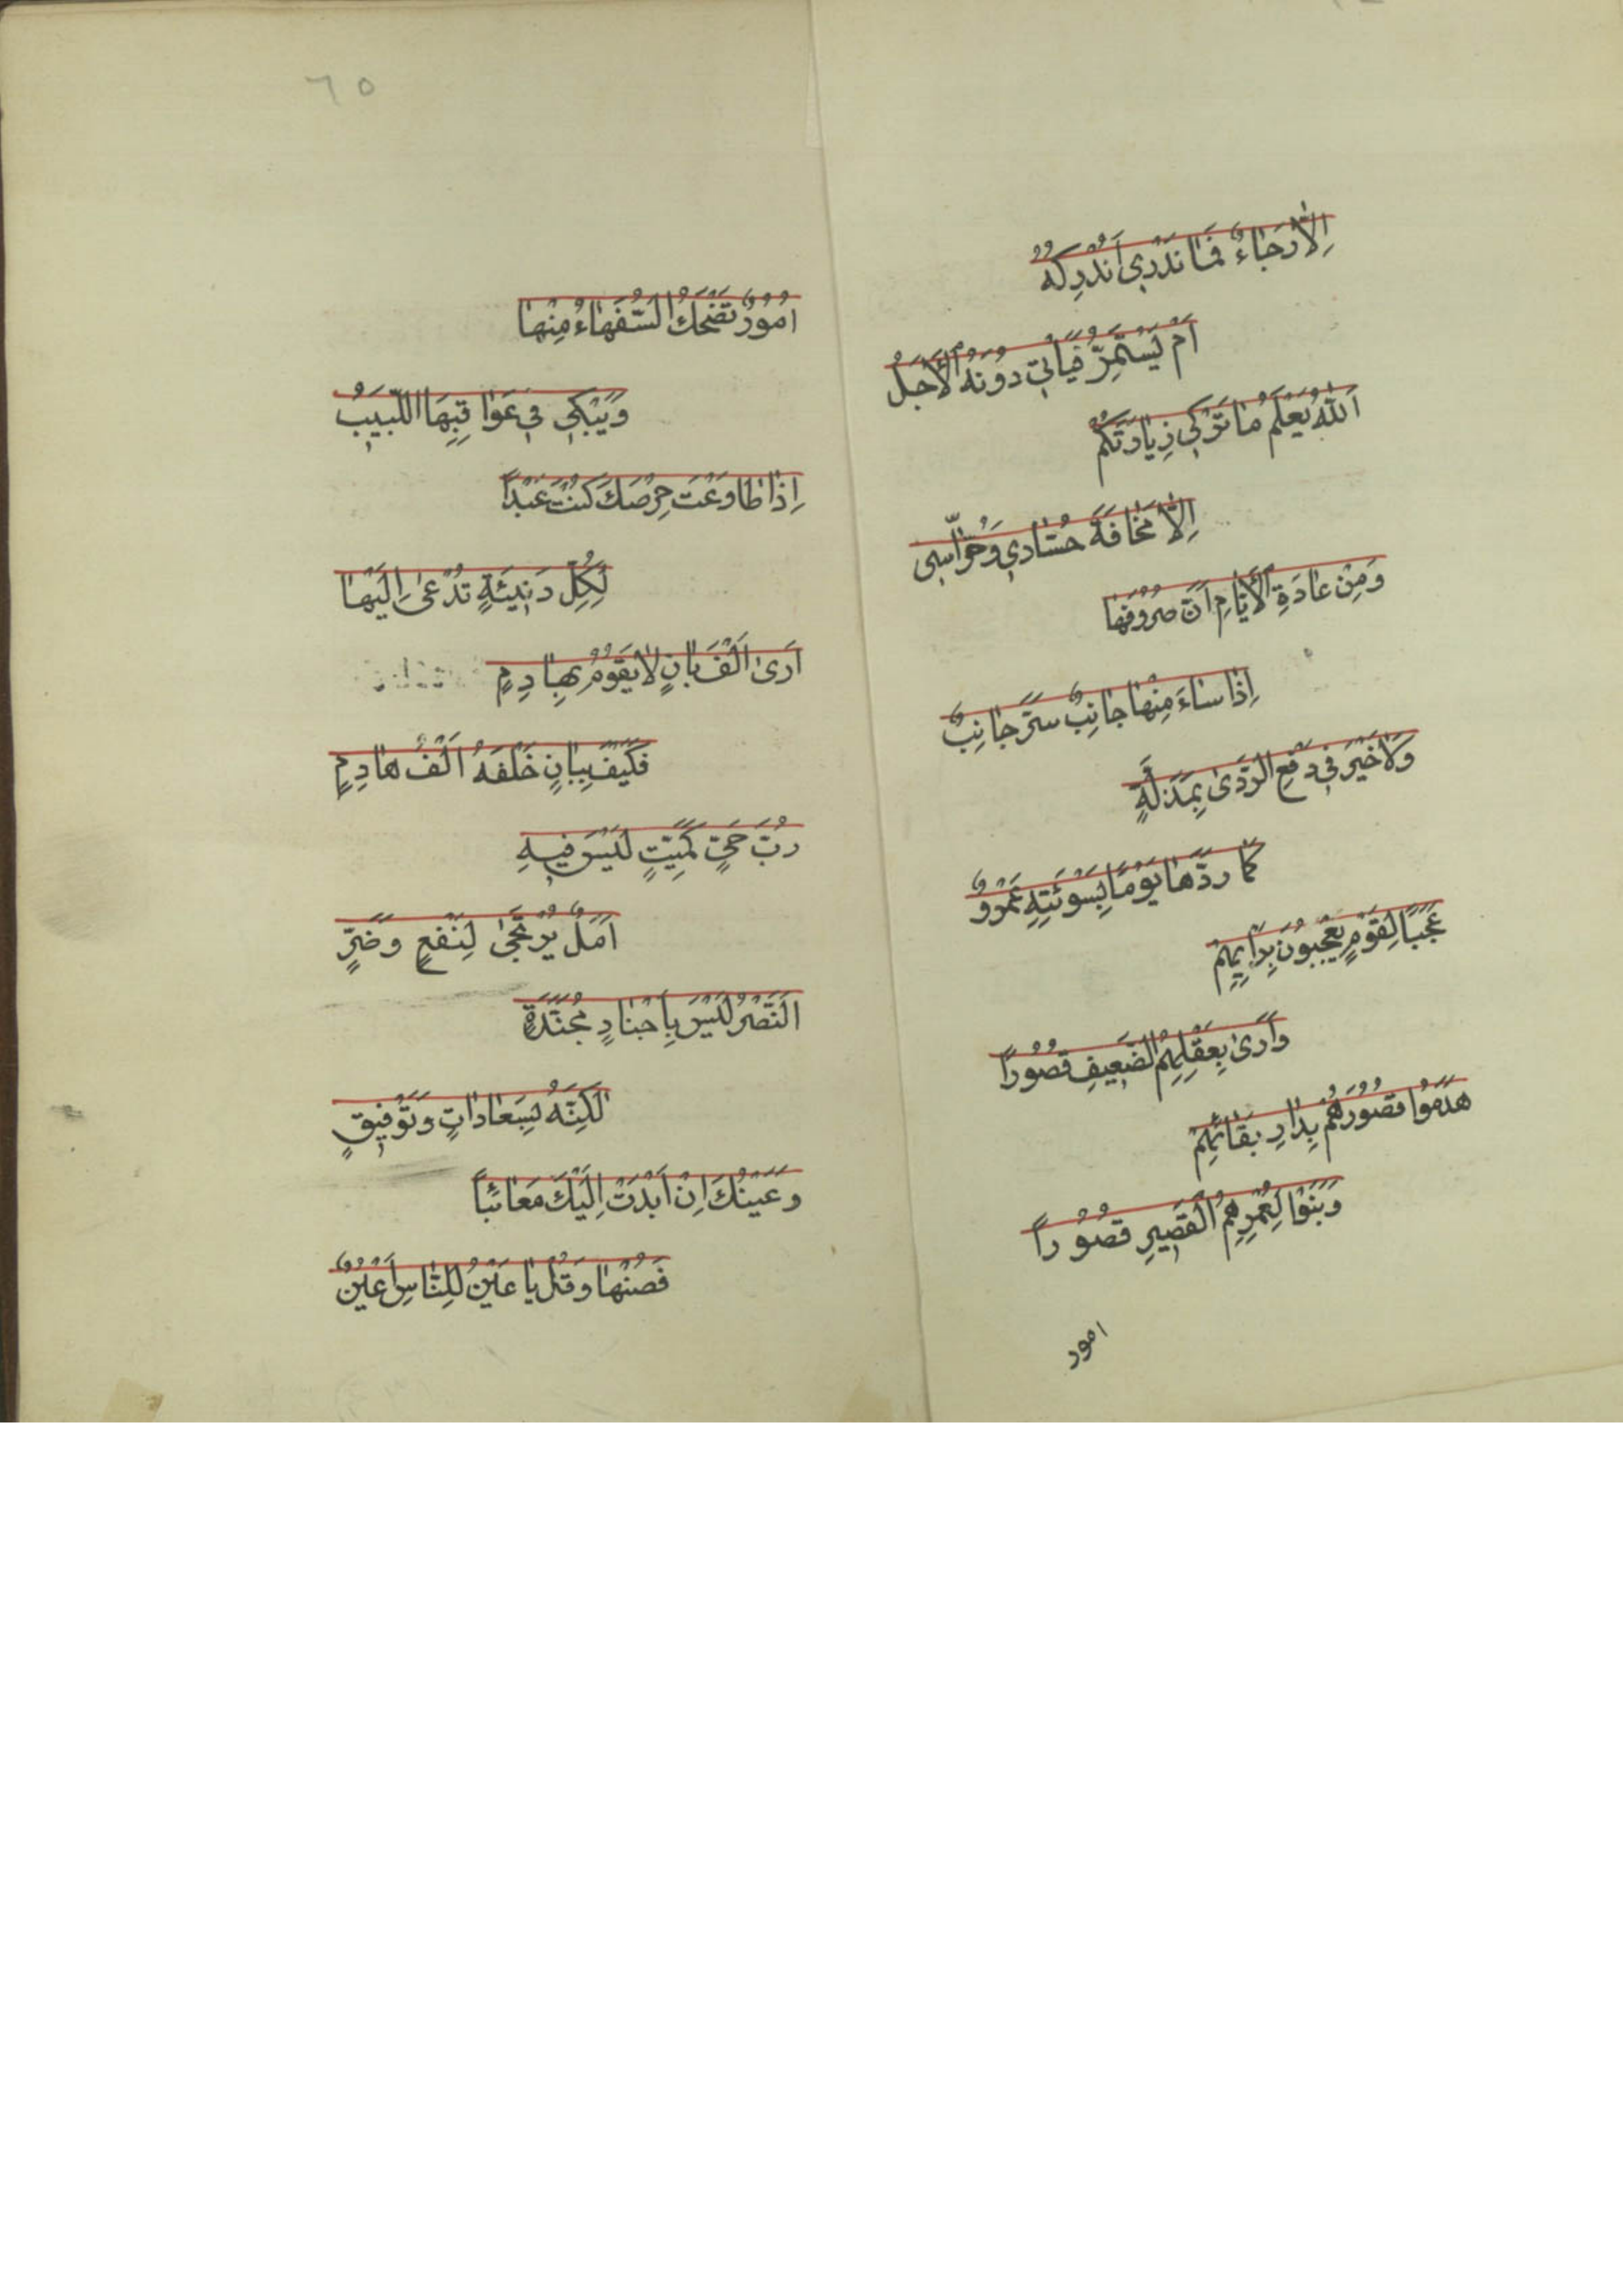 اِلَّا رَجَاءٌ فَمَا نَدْرِي اَنُدْرِكُهُ
اَمْ يَسْتَمِرُّ فَيَأْتِي دُونَهُ الْأَجَلُ
اَللّٰهُ يَعْلَمُ مَا تَرْكِي زِيَارَتَكُمْ
اِلَّا مَخَافَةَ حُسَّادِي وَحُرَّاسِي
وَمِنْ عَادَةِ الْأَيَّامِ اَنَّ صُرُوفَهَا
اِذَا سَاءَ مِنْهَا جَانِبٌ سَرَّ جَانِبٌ
وَلَا خَيْرَ فِي دَفْعِ الرَّدَى بِمَذَلَّةٍ
كَمَا رَدَّهَا يَوْمًا بِسَوْئَتِهِ عَمْرٌو
عَجَبًا لِقَوْمٍ يَعْجَبُونَ بِرَأْيِهِمْ
وَاَرَى بِعَقْلِهِمُ الضَّعِيفِ قُصُورًا
هَدَمُوا قُصُورَهُمْ بِدَارِ بَقَائِهِمْ
وَبَنَوْا لِعُمْرِهِمُ الْقَصِيرِ قُصُورًا
امور
٦٥
اُمُورٌ تَضْحَكُ السُّفَهَاءُ مِنْهَا
وَيَبْكِي فِي عَوَاقِبِهَا اللَّبِيبُ
اِذَا طَاوَعْتَ حِرْصَكَ كُنْتَ عَبْدًا
لِكُلِّ دَنِيئَةٍ تُدْعَى اِلَيْهَا
اَرَى اَلْفَ بَانٍ لَا يَقُومُ بِهَادِمٍ
فَكَيْفَ بِبَانٍ خَلْفَهُ اَلْفُ هَادِمٍ
رُبَّ حَيٍّ كَمَيِّتٍ لَيْسَ فِيهِ
اَمَلٌ يُرْتَجَى لِنَفْعٍ وَضَرٍّ
اَلنَّصْرُ لَيْسَ بِاَجْنَادٍ مُجَنَّدَةٍ
لٰكِنَّهُ بِسَعَادَاتٍ وَتَوْفِيقٍ
وَعَيْنُكَ اِنْ اَبْدَتْ اِلَيْكَ مَعَائِبًا
فَصُنْهَا وَقُلْ يَا عَيْنُ لِلنَّاسِ اَعْيُنٌ